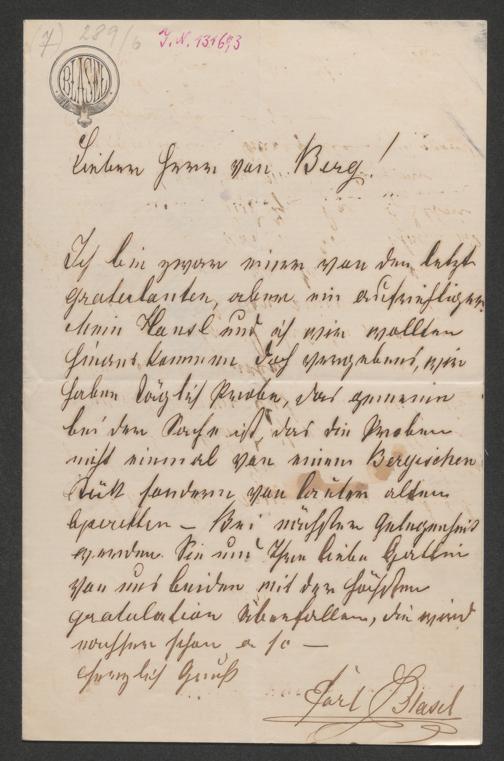 (7) 289/6 I.N. 131693
BLASEL
Lieber Herr von Berg!
Ich bin zwar einer von den letzt
gratulanten, aber ein aufrichtiger
Mein Hansl und ich wir wollten
hinaus kommen doch vergebens, wir
haben täglich Probe, das gemeine
bei der Sache ist, das die Proben
nicht einmal von einem Bergischen
Stük sondern von lauter alten
Operetten – Bei nächster Gelegenheit
werden Sie und Ihre liebe Gattin
von uns beiden mit der höchsten
gratulation überfallen, die wird
nachher schon a so –
Herzlich Gruß
Karl Blasel